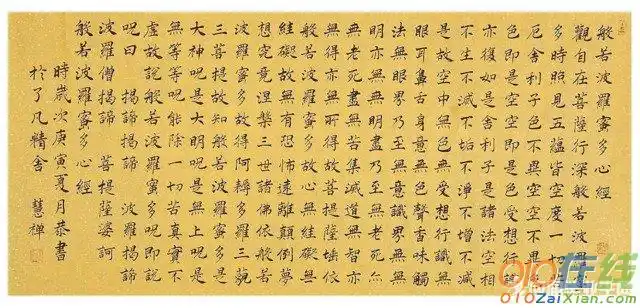 般若波羅蜜多心經
觀自在菩薩行深般若波羅蜜
多時照見五蘊皆空度一切
厄舍利子色不異空空不異色
色即是空空即是色受想行識
亦復如是舍利子是諸法空相
不生不滅不垢不淨不增不減
是故空中無色無受想行識無
眼耳鼻舌身意無色聲香味觸
法無眼界乃至無意識界無無
明亦無無明盡乃至無老死亦
無老死盡無苦集滅道無智亦
無得以無所得故菩提薩埵依
般若波羅蜜多故心無罣礙無
罣礙故無有恐怖遠離顛倒夢
想究竟涅槃三世諸佛依般若
波羅蜜多故得阿耨多羅三藐
三菩提故知般若波羅蜜多是
大神呪是大明呪是無上呪是
無等等呪能除一切苦真實不
虛故說般若波羅蜜多呪即說
呪曰 揭諦揭諦 波羅揭諦
波羅僧揭諦 菩提薩婆訶
般若波羅蜜多心經
時歲次庚寅夏月恭書
於了凡精舍 慧禪
910在线
910ZaiXian.com